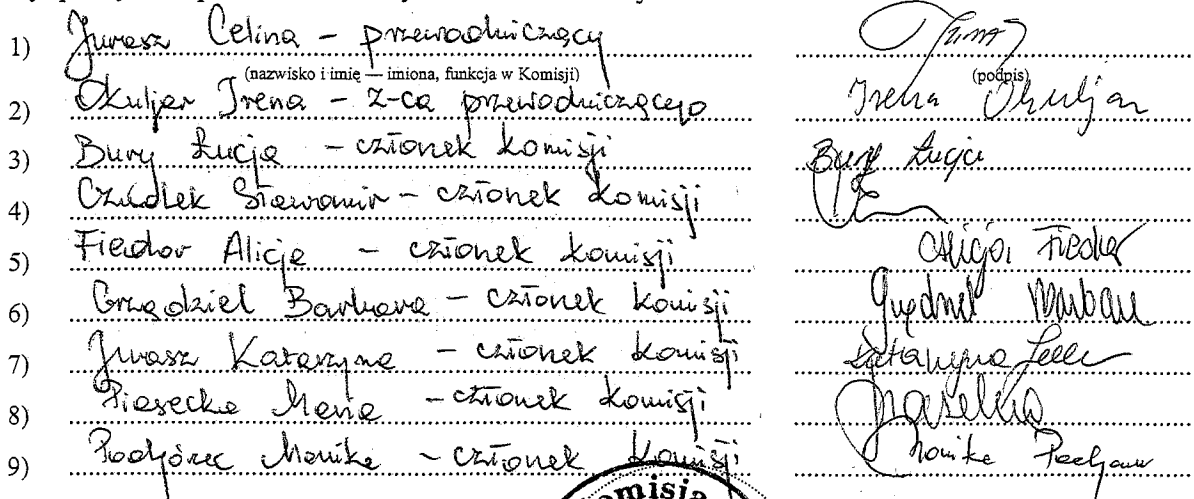 1) Jurasz Celina - przewodniczący
(nazwisko i imię — imiona, funkcja w Komisji) (podpis)
2) Okuljar Irena - z-ca przewodniczącego Irena Okuljar
3) Bury Łucja - członek komisji Bury Łucja
4) Czudlek Sławomir - członek komisji
5) Fiedor Alicja - członek komisji Alicja Fiedor
6) Grządziel Barbara - członek komisji Grządziel Barbara
7) Jurasz Katarzyna - członek komisji Katarzyna
8) Piasecka Maria - członek komisji Piasecka
9) Podgórzec Monika - członek komisji Monika
omisja